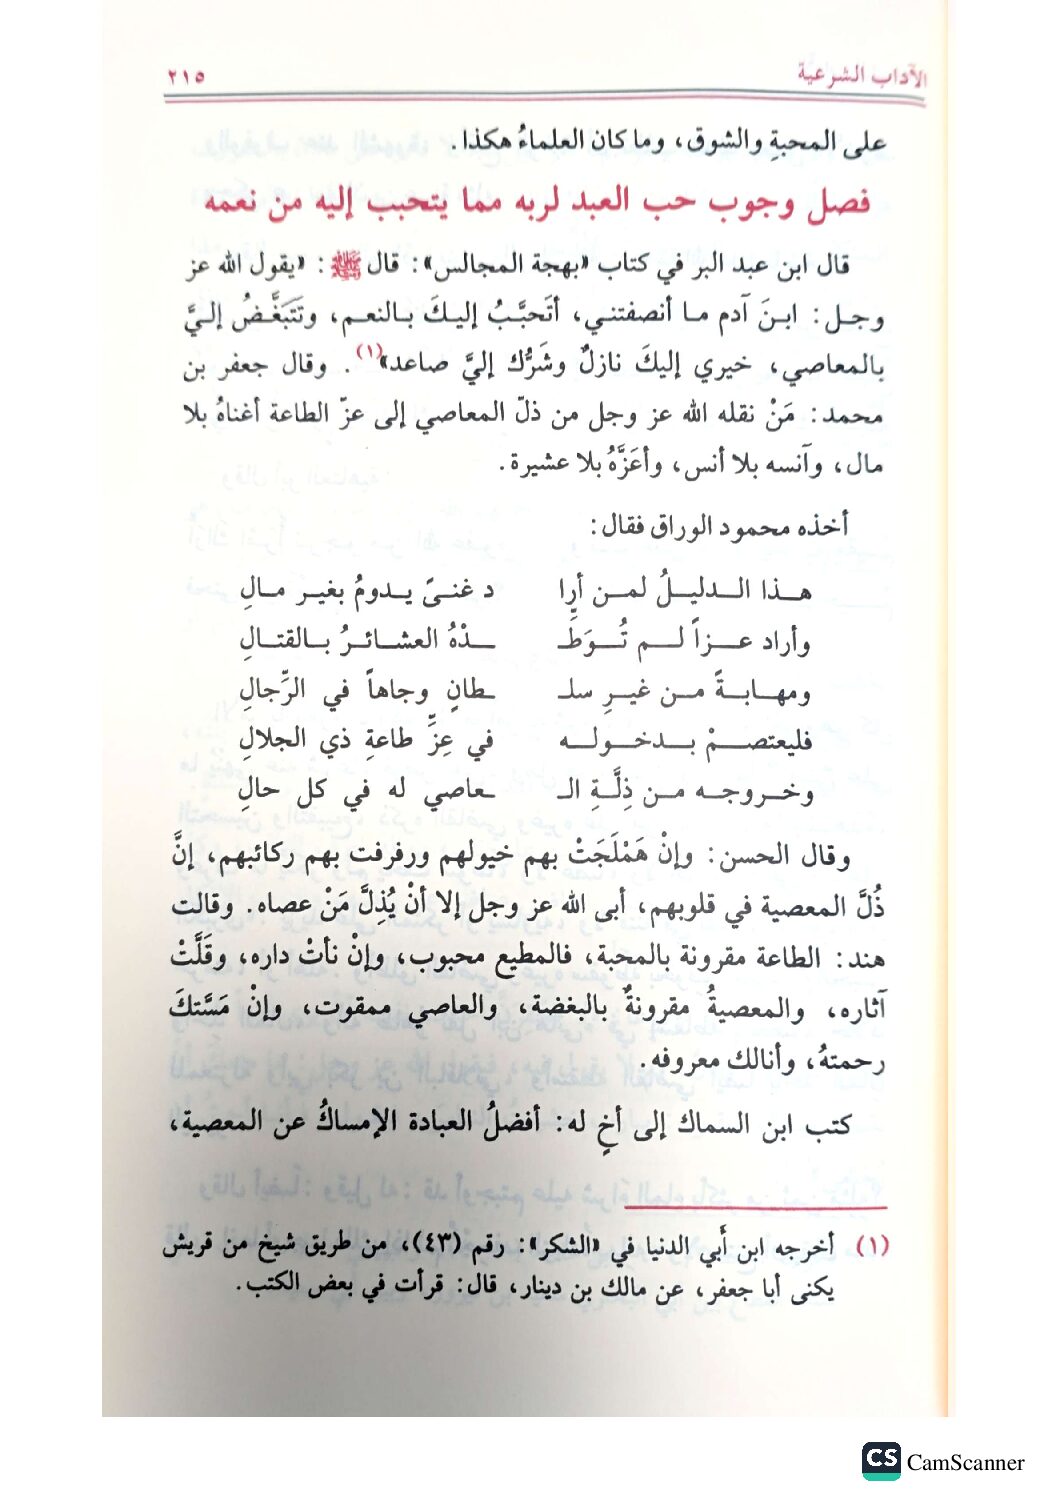 الآداب الشرعية ٢١٥
على المحبةِ والشوق، وما كان العلماءُ هكذا.
فصل وجوب حب العبد لربه مما يتحبب إليه من نعمه
قال ابن عبد البر في كتاب «بهجة المجالس»: قال ﷺ: «يقول الله عز
وجل: ابنَ آدم ما أنصفتني، أتَحبَّبُ إليكَ بالنعم، وتَتَبَغَّضُ إليَّ
بالمعاصي، خيري إليكَ نازلٌ وشَرُّك إليَّ صاعد»(١). وقال جعفر بن
محمد: مَنْ نقله الله عز وجل من ذلّ المعاصي إلى عزّ الطاعة أغناهُ بلا
مال، وآنسه بلا أنس، وأعَزَّهُ بلا عشيرة.
أخذه محمود الوراق فقال:
هـذا الـدليـلُ لمـن أرا د غنىً يـدومُ بغيـر مـالِ
وأراد عـزاً لـم تُـوَطـ ـدْهُ العشـائـرُ بـالقتـالِ
ومهـابـةً مـن غيـرِ سلـ ـطانٍ وجاهاً في الرِّجالِ
فليعتصـمْ بـدخـولـه في عِزِّ طاعةِ ذي الجلالِ
وخـروجـه مـن ذِلَّـةِ الـ ـعاصي له في كل حالِ
وقال الحسن: وإنْ هَمْلَجَتْ بهم خيولهم ورفرفت بهم ركائبهم، إنَّ
ذُلَّ المعصية في قلوبهم، أبى الله عز وجل إلا أنْ يُذِلَّ مَنْ عصاه. وقالت
هند: الطاعة مقرونة بالمحبة، فالمطيع محبوب، وإنْ نأتْ داره، وقَلَّتْ
آثاره، والمعصيةُ مقرونةٌ بالبغضة، والعاصي ممقوت، وإنْ مَسَّتكَ
رحمتهُ، وأنالك معروفه.
كتب ابن السماك إلى أخٍ له: أفضلُ العبادة الإمساكُ عن المعصية،
(١) أخرجه ابن أبي الدنيا في «الشكر»: رقم (٤٣)، من طريق شيخ من قريش
يكنى أبا جعفر، عن مالك بن دينار، قال: قرأت في بعض الكتب.
CS CamScanner